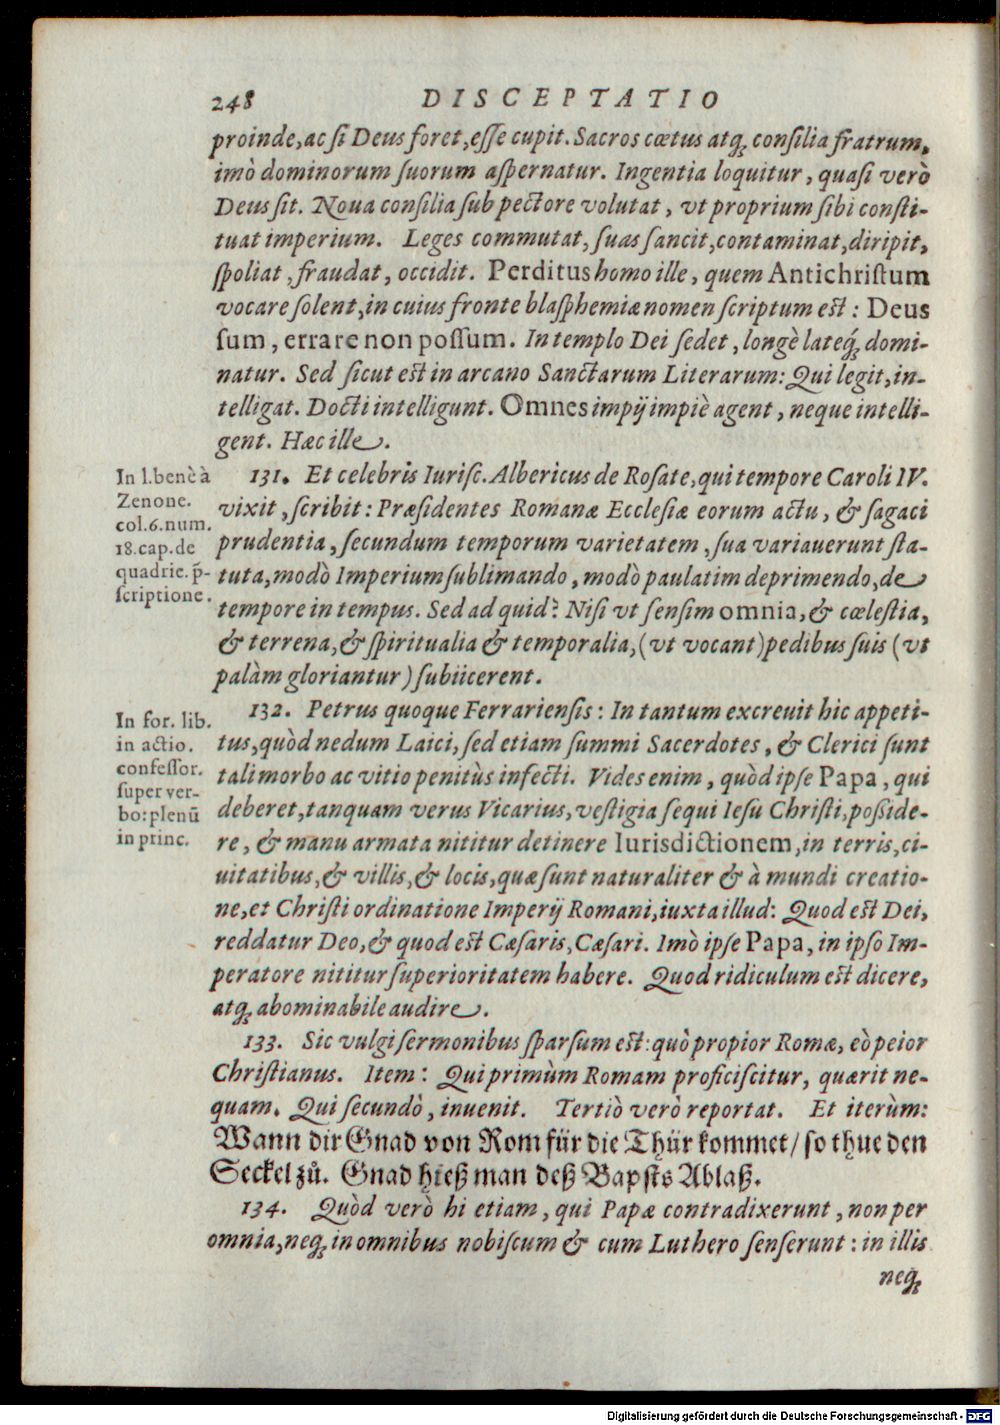 248 DISCEPTATIO
proinde, ac ſi Deus foret, eſſe cupit. Sacros cœtus atq́; conſilia fratrum,
imò dominorum ſuorum aſpernatur. Ingentia loquitur, quaſi verò
Deus ſit. Noua conſilia ſub pectore volutat, vt proprium ſibi conſti-
tuat imperium. Leges commutat, ſuas ſancit, contaminat, diripit,
ſpoliat, fraudat, occidit. Perditus homo ille, quem Antichriſtum
vocare ſolent, in cuius fronte blaſphemiæ nomen ſcriptum eſt: Deus
ſum, errare non poſſum. In templo Dei ſedet, longè lateq́; domi-
natur. Sed ſicut eſt in arcano Sanctarum Literarum: Qui legit, in-
telligat. Docti intelligunt. Omnes impij impiè agent, neque intelli-
gent. Hæc ille.
In l. benè à
Zenone.
col. 6. num.
18. cap. de
quadrie. p̄-
ſcriptione.
131. Et celebris Iuriſc. Albericus de Roſate, qui tempore Caroli IV.
vixit, ſcribit: Præſidentes Romanæ Eccleſiæ eorum actu, & ſagaci
prudentia, ſecundum temporum varietatem, ſua variauerunt ſta-
tuta, modò Imperium ſublimando, modò paulatim deprimendo, de
tempore in tempus. Sed ad quid? Niſi vt ſenſim omnia, & cœleſtia,
& terrena, & ſpiritualia & temporalia, (vt vocant) pedibus ſuis (vt
palàm gloriantur) ſubiicerent.
In for. lib.
in actio.
confeſſor.
ſuper ver-
bo: plenū
in princ.
132. Petrus quoque Ferrarienſis: In tantum excreuit hic appeti-
tus, quòd nedum Laici, ſed etiam ſummi Sacerdotes, & Clerici ſunt
tali morbo ac vitio penitùs infecti. Vides enim, quòd ipſe Papa, qui
deberet, tanquam verus Vicarius, veſtigia ſequi Ieſu Chriſti, poſſide-
re, & manu armata nititur detinere Iurisdictionem, in terris, ci-
uitatibus, & villis, & locis, quæ ſunt naturaliter & à mundi creatio-
ne, et Chriſti ordinatione Imperij Romani, iuxta illud: Quod eſt Dei,
reddatur Deo, & quod eſt Cæſaris, Cæſari. Imò ipſe Papa, in ipſo Im-
peratore nititur ſuperioritatem habere. Quod ridiculum eſt dicere,
atq́; abominabile audire.
133. Sic vulgi ſermonibus ſparſum eſt: quò propior Romæ, eò peior
Chriſtianus. Item: Qui primùm Romam proficiſcitur, quærit ne-
quam. Qui ſecundò, inuenit. Tertiò verò reportat. Et iterùm:
Wann dir Gnad von Rom für die Thür kommet/ ſo thue den
Seckel zů. Gnad hieß man deß Bapſts Ablaß.
134. Quòd verò hi etiam, qui Papæ contradixerunt, non per
omnia, neq́; in omnibus nobiſcum & cum Luthero ſenſerunt: in illis
neq́;
Digitalisierung gefördert durch die Deutsche Forschungsgemeinschaft - DFG